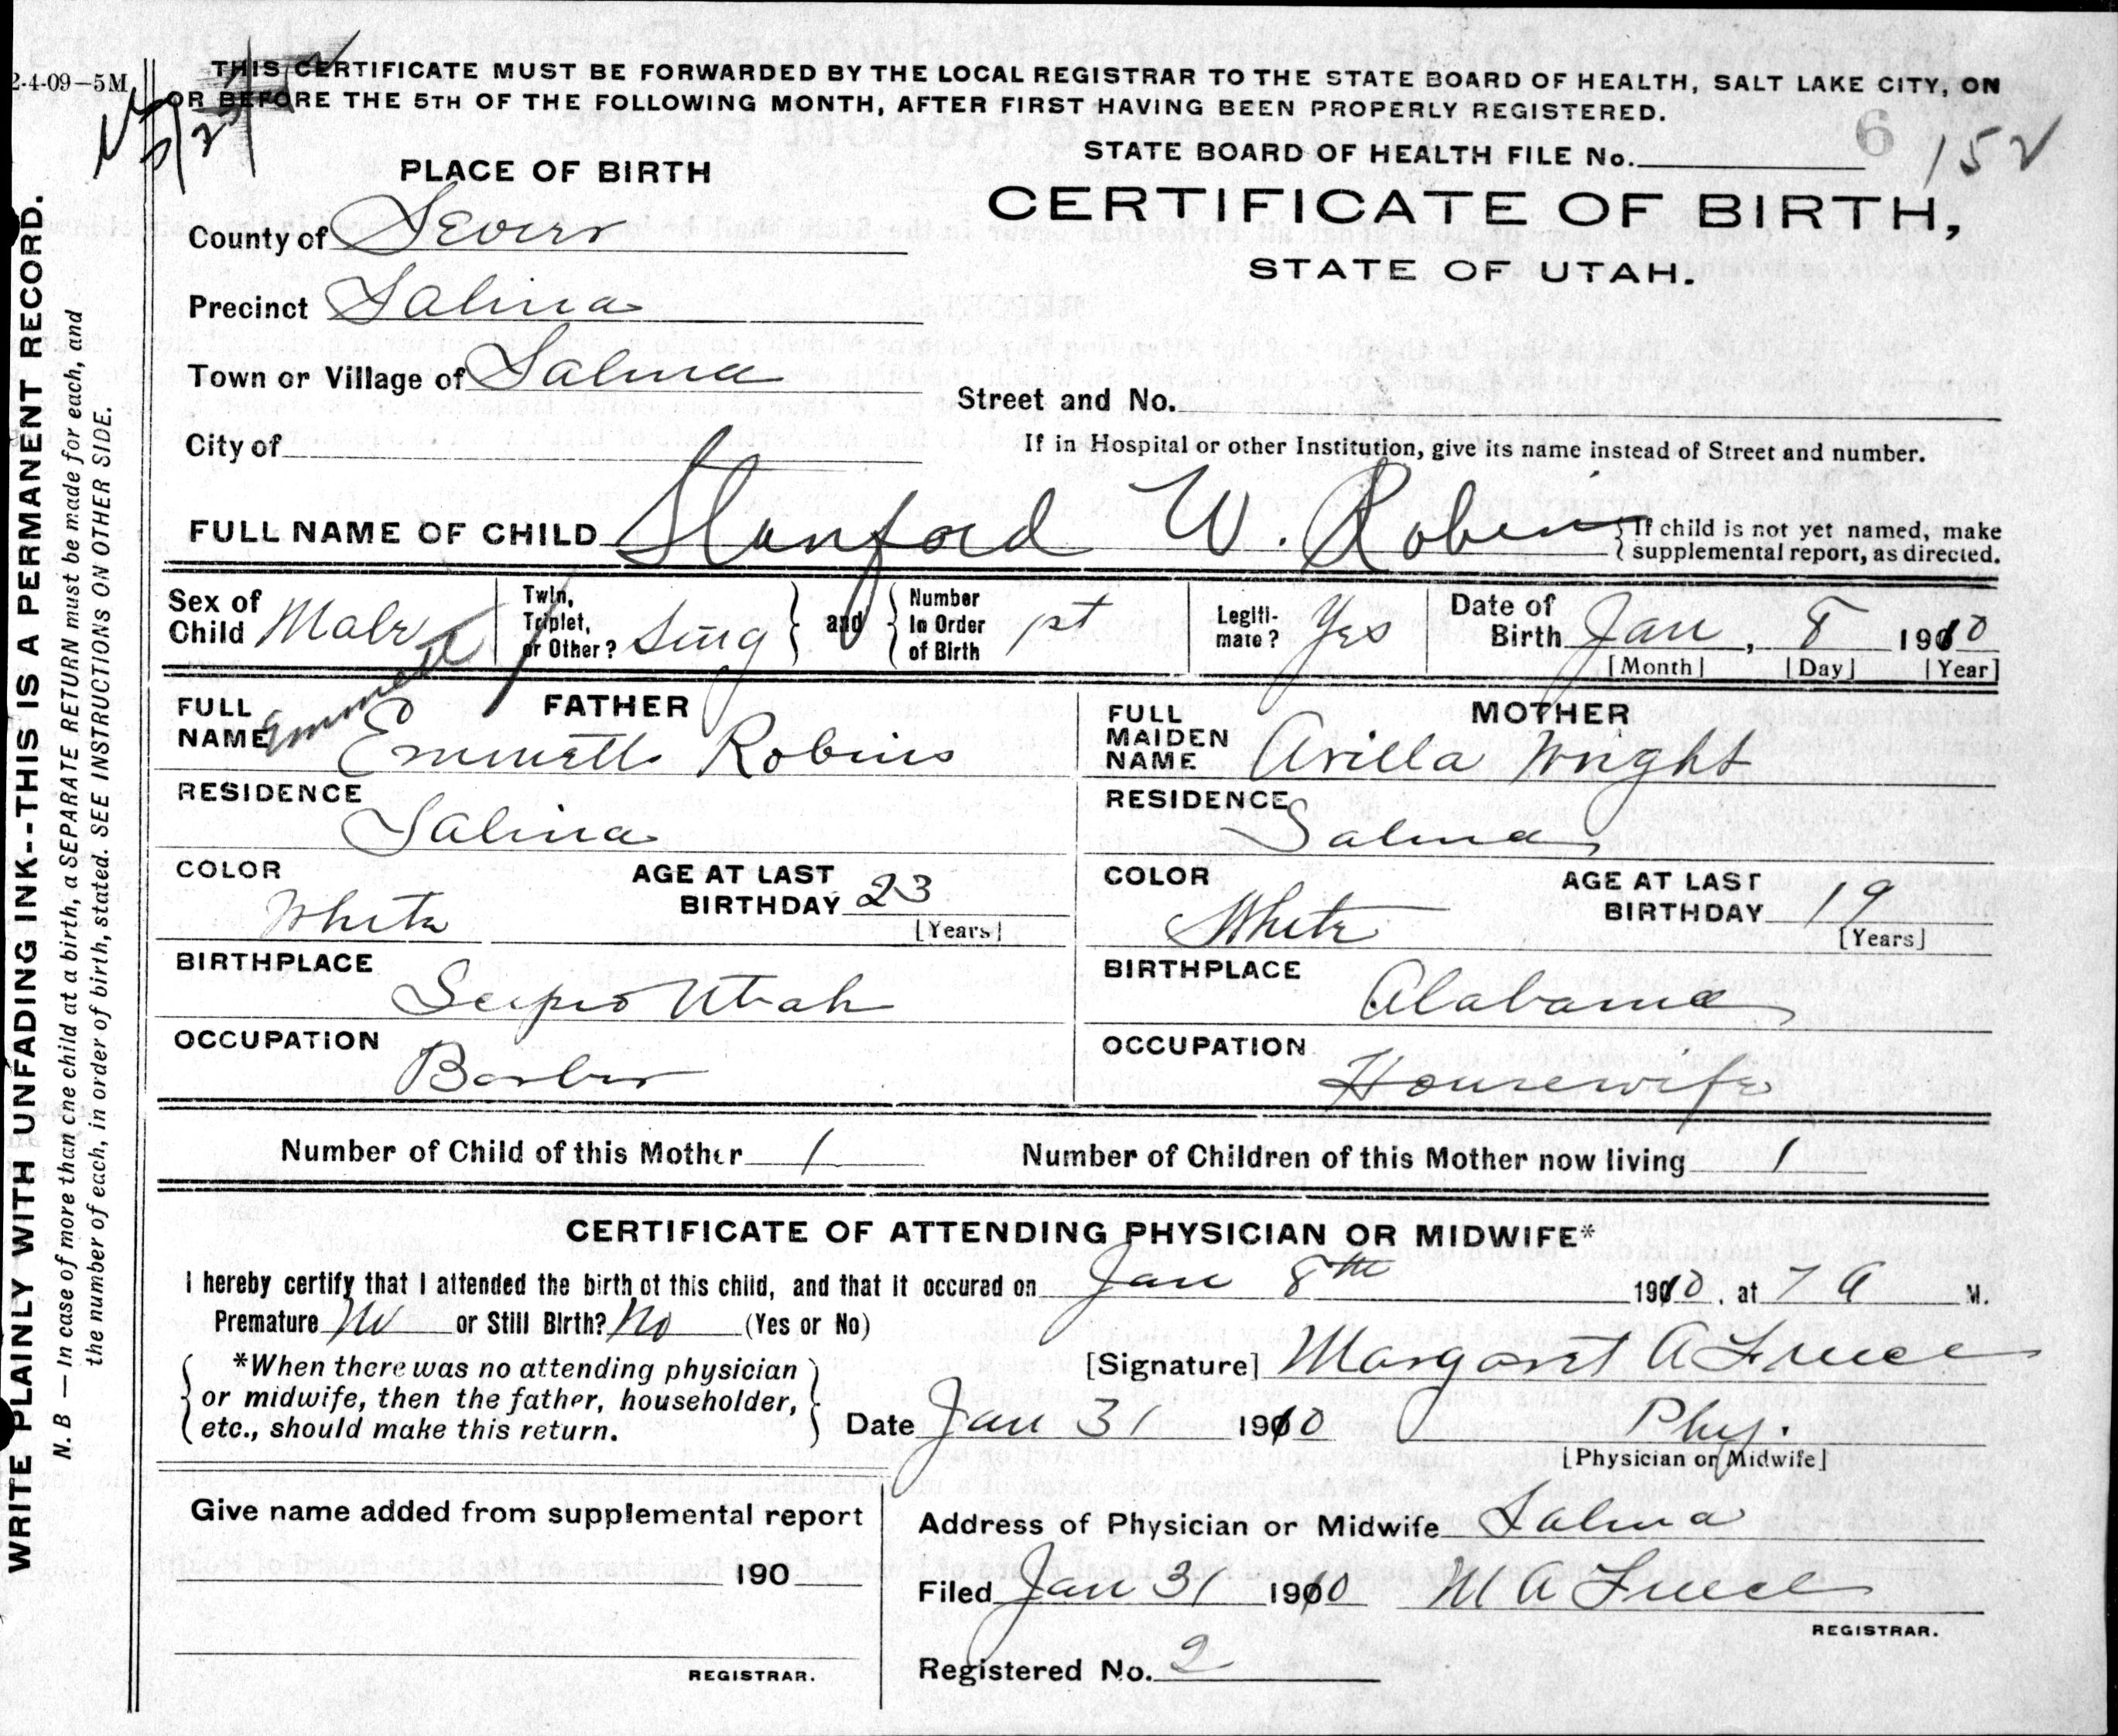 2-4-09—5M
THIS CERTIFICATE MUST BE FORWARDED BY THE LOCAL REGISTRAR TO THE STATE BOARD OF HEALTH, SALT LAKE CITY, ON
OR BEFORE THE 5TH OF THE FOLLOWING MONTH, AFTER FIRST HAVING BEEN PROPERLY REGISTERED.
STATE BOARD OF HEALTH FILE No. 6 152
PLACE OF BIRTH
CERTIFICATE OF BIRTH,
STATE OF UTAH.
County of Sevier
Precinct Salina
Town or Village of Salina
Street and No.
City of
If in Hospital or other Institution, give its name instead of Street and number.
FULL NAME OF CHILD Stanford W. Robins
If child is not yet named, make
supplemental report, as directed.
Sex of Child Male
Twin, Triplet, or Other? Sing and Number In Order of Birth 1st
Legiti-mate? Yes
Date of Birth Jan, 8 1910
[Month] [Day] [Year]
Emmett
FATHER
FULL NAME Emmett Robins
RESIDENCE Salina
COLOR White
AGE AT LAST BIRTHDAY 23
[Years]
BIRTHPLACE Scipio Utah
OCCUPATION Barber
MOTHER
FULL MAIDEN NAME Arilla Wright
RESIDENCE Salina
COLOR White
AGE AT LAST BIRTHDAY 19
[Years]
BIRTHPLACE Alabama
OCCUPATION Housewife
Number of Child of this Mother 1 Number of Children of this Mother now living 1
CERTIFICATE OF ATTENDING PHYSICIAN OR MIDWIFE*
I hereby certify that I attended the birth of this child, and that it occured on Jan 8th 1910, at 7 A M.
Premature No or Still Birth? No (Yes or No)
*When there was no attending physician
or midwife, then the father, householder,
etc., should make this return.
[Signature] Margaret A Freece
Date Jan 31 1910 Phy.
[Physician or Midwife]
Give name added from supplemental report
190
REGISTRAR.
Address of Physician or Midwife Salina
Filed Jan 31 1910 M A Freece
REGISTRAR.
Registered No. 2
WRITE PLAINLY WITH UNFADING INK--THIS IS A PERMANENT RECORD.
N. B — In case of more than one child at a birth, a SEPARATE RETURN must be made for each, and
the number of each, in order of birth, stated. SEE INSTRUCTIONS ON OTHER SIDE.